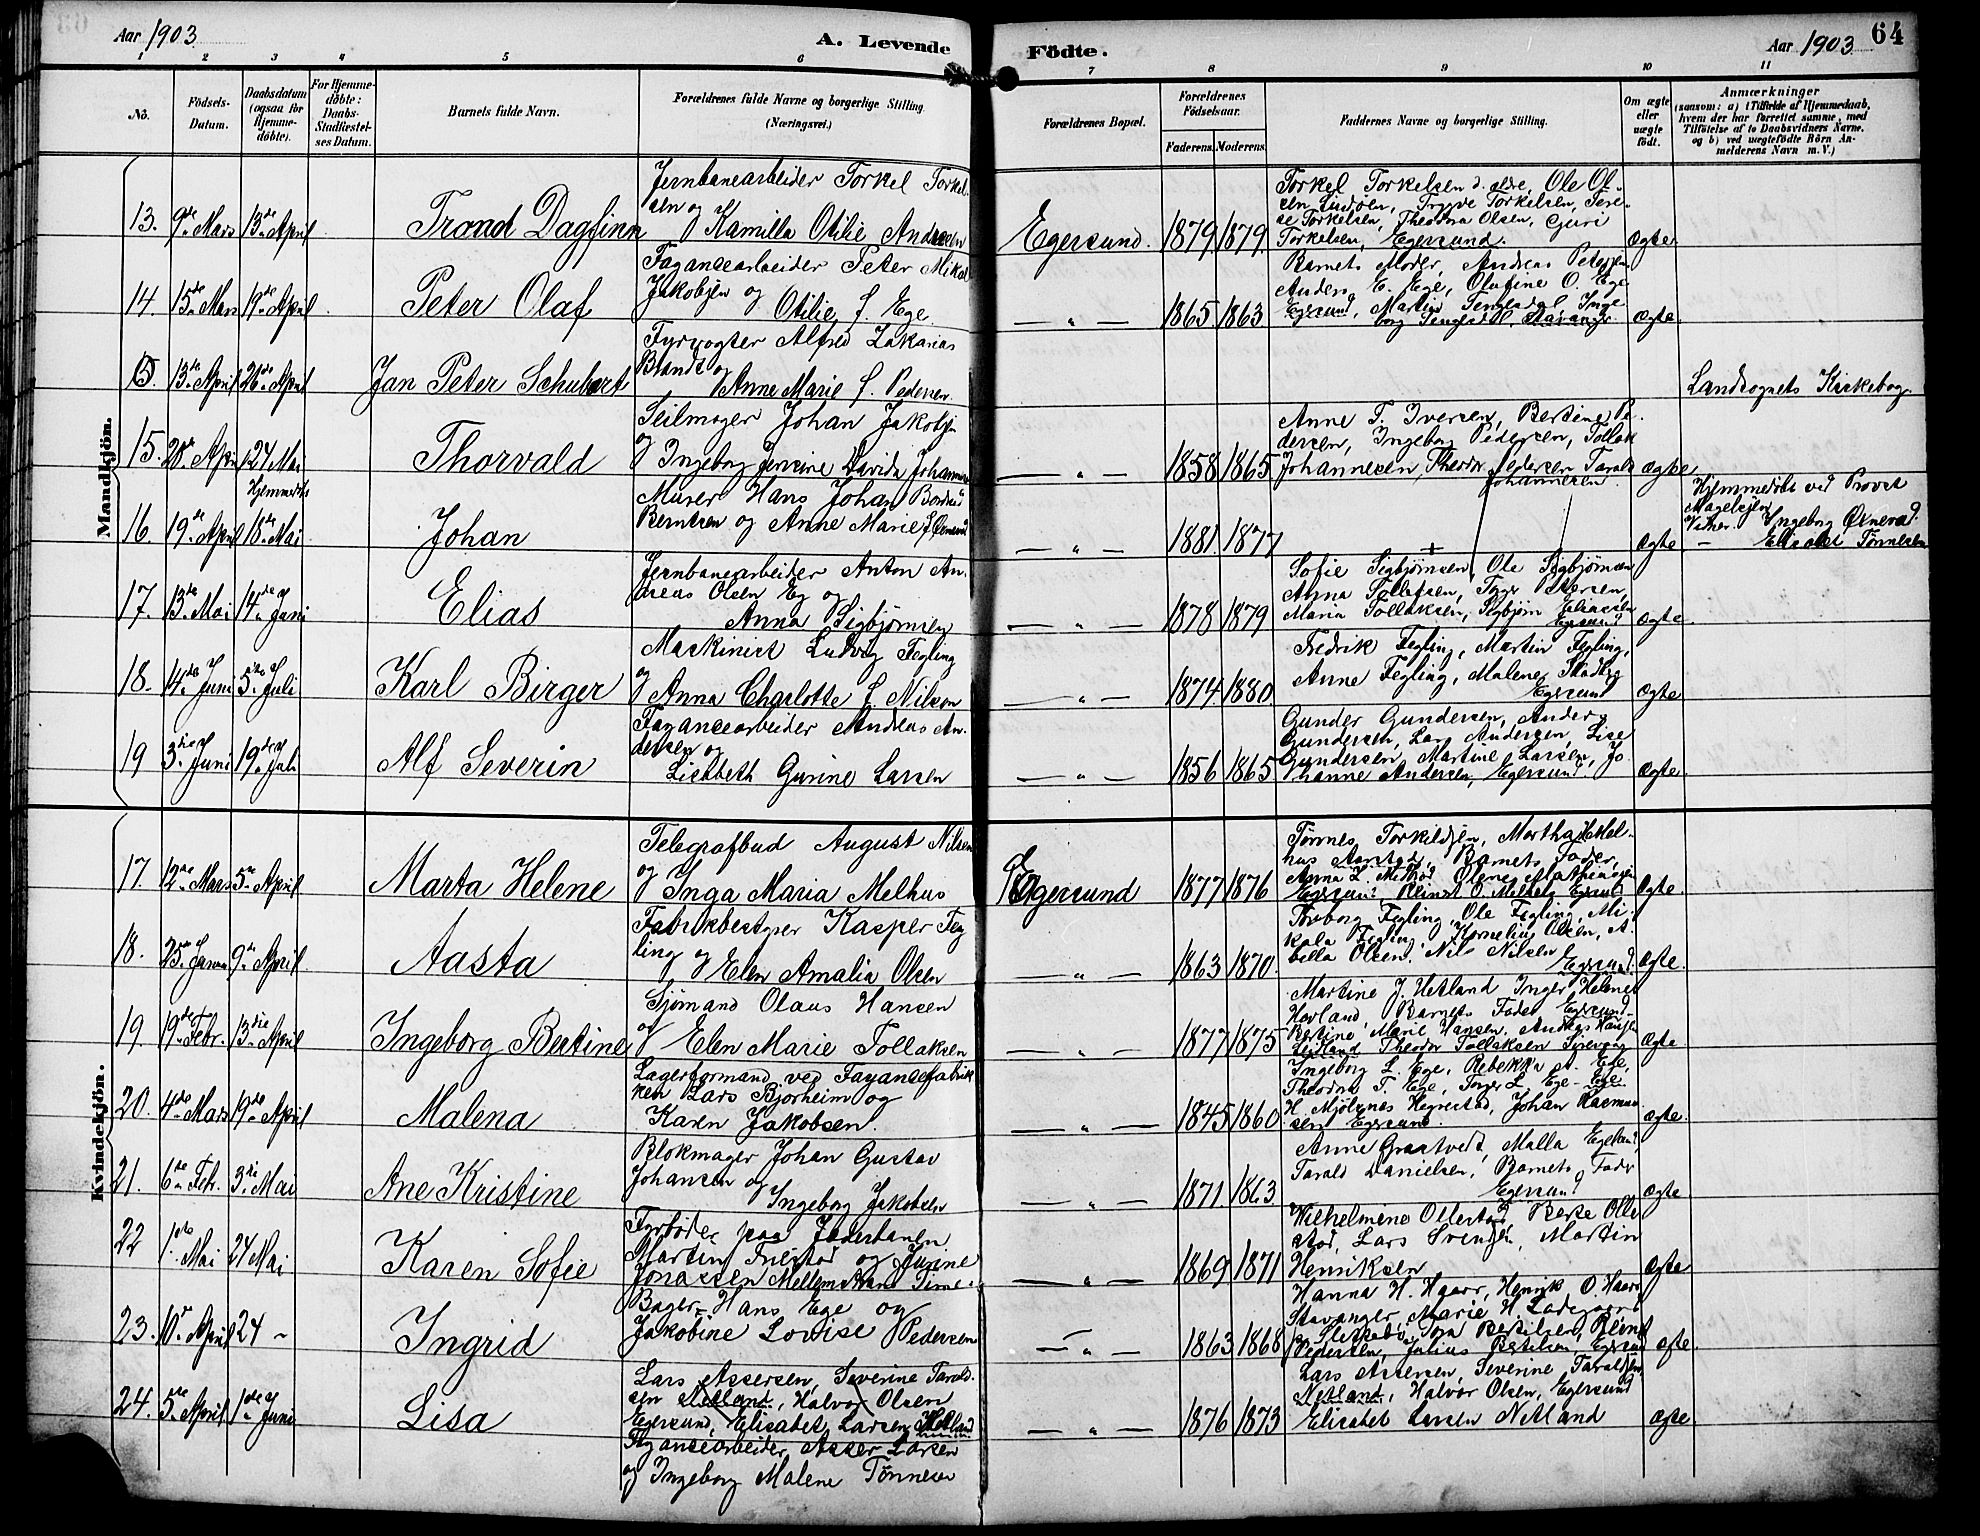 Aar 1903 A. Levende Födte. Aar 1903 64
1 2 3 4 5 6 7 8 9 10 11
No.
Födsels-Datum.
Daabsdatum (ogsaa for Hjemmedöbte).
For Hjemmedöbte: Daabs-Stadfestelses Datum.
Barnets fulde Navn.
Forældrenes fulde Navne og borgerlige Stilling (Næringsvei.)
Forældrenes Bopæl.
Forældrenes Födselsaar.
Faderens. Moderens.
Faddernes Navne og borgerlige Stilling.
Om ægte eller uægte födt.
Anmærkninger
(saasom: a) i Tilfælde af Hjemmedaab, hvem der har forrettet samme, med Tilföielse af to Daabsvidners Navne. og b) ved uægtefödte Börn Anmelderens Navn m. V.)
Mandkjön.
13. 9de Mars 13de April
Trond Dagfinn
Jernbanearbeider Torkel Torkelsen og
Kamilla Otilie Andersen
Egersund. 1879. 1879.
Torkel Torkelsen d. eldre, Ole Ol-
sen Lindöen, Trygve Torkelsen, Tere-
se Torkelsen, Theodora Olsen, Guri
Torkelsen, Egersund.
Ægte
14. 15de Mars 19de April
Peter Olaf
Fayancearbeider Peter Mikal
Jakobsen og Otilie f. Ege.
— " — 1865 1863
Barnets Moder, Andreas Petersen
Anders E. Ege, Olufine O. Ege
Egersund, Martin Tengesdal, Inge
borg Tengesdal, Stavanger
Ægte
13de April 26de April
Jan Peter Schubert
Fyrvogter Alfred Zakarias
Blandt og
Anne Marie f. Pedersen.
Landsognets Kirkebog
15. 20de April 24 Mai
Thorvald
Seilmager Johan Jakobsen
og Ingeborg Jensine Davida Johannesen
— " — 1858 1865
Anne T. Iversen, Bertine Pe-
dersen, Ingeborg Pedersen, Tollak
Johannesen, Theodor Pedersen Tarald
Johannesen.
Ægte
16. 19de April Hjemmedöbt 18de Mai
Johan
Murer Hans Johan
Berntsen og Anne Marie f.
— " — 1881. 1877
Ægte
Hjemmedöbt ved Provst
Magelssen
Vidner. Ingeborg
— Elisabet Tönnesen
17. 13de Mai 14de Juni
Elias
Jernbanearbeider Anton An-
dreas Olsen Eg og
Anna Sigbjörnsen
— " — 1878 1879
Sofie Sigbjörnsen, Ole Sigbjörnsen
Anna Tollefsen, Petersen,
Maria Tollaksen, Sigbjörn Eliassen
Egersund
Ægte
18. 14de Juni 5te Juli
Karl Birger
Maskinist Ludvig Fegling
og Anna Charlotte f. Nilsen
— " — 1874. 1880.
Fredrik Fegling, Martin Fegling,
Anne Fegling, Malene
Egersund
Ægte
19 3die Juni 19de Juli
Alf Severin
Fayancearbeider Andreas An-
dersen og
Lisabeth Gurine Larsen
— " — 1856 1865
Gunder Gundersen, Anders
Gundersen, Lars Andersen, Lise
Gundersen, Martine Larsen, Jo
hanne Andersen, Egersund
Ægte
Kvindekjön.
17. 12te Mars 5te April
Marta Helene
Telegrafbud August Nilsen
og Inga Maria Melhus
Egersund 1877 1876
Tönnes Torkildsen, Martha Mel-
hus Aarstad, Barnets Fader,
Egersund
Ægte
18. 25de Januar 9de April
Aasta
Fabrikbestyrer Kasper Feg
ling og Elen Amalia Olsen
— " — 1863 1870.
Torborg Fegling, Ole Fegling, Mi-
kala Fegling, Kornelius Olsen,
bella Olsen, Nils Nilsen
Egersund
Ægte.
19. 19de Febr. 13die April
Ingeborg Bertine
Sjömand Olaus Hansen
og Elen Marie Tollaksen
— " — 1877 1875
Martine J. Hetland Inger Helene
Hovland Barnets Fader Egersund
Bertine Marie Hansen. Andreas Hansen
Theodor Tollaksen Sirevaag
Ægte
20. 4de Mars 19de April
Malena
Lagerformand ved Fayancefabrik
ken Lars Bjorheim og
Karen Jakobsen.
— " — 1845 1860.
Ingeborg L. Ege, Rebekka A. Ege,
Theodor T. Ege, Torger L. Ege - Ege
H. Mjölsnes Hegrestad, Johan Rasmus
sen Egersund.
Ægte.
21. 6te Febr. 3die Mai
Ane Kristine
Blokmager Johan Gustav
Johansen og
Ingeborg Jakobsen
— " — 1871. 1863
Anne Graatveit, Malla Egeland,
Tarald Danielsen, Barnets Fader
Egersund
Ægte
22 1ste Mai 24 Mai
Karen Sofie
Fyrböder paa Jæderbanen
Martin Friestad og Jurine
Jonassen
— " — 1869 1871
Wilhelmine Ollestad, Berte Olle
stad, Lars Svendsen, Martin
Henriksen
Ægte
23. 10de April 24 -
Ingrid
Bager Hans Ege og
Jakobine Lovise Pedersen
— " — 1863 1868
Hanna H. Haarr, Henrik O. Haarr
Stavanger, Marie H. Ladegaard
Bertilsen,
Pedersen, Julius Bertilsen, Egersund
Ægte.
24. 5te April 1ste Juni
Lisa
Lars Assersen, Severine Tarald-
sen Netland, Halvor Olsen
Egersund, Elisabet Larsen Netland
Fayancearbeider Asser Larsen
og Ingeborg Malene Tönnesen
— " — 1876 1873
Lars Assersen, Severine Taraldsen
Netland, Halvor Olsen, Egersund
Elisabet Larsen Netland
Ægte